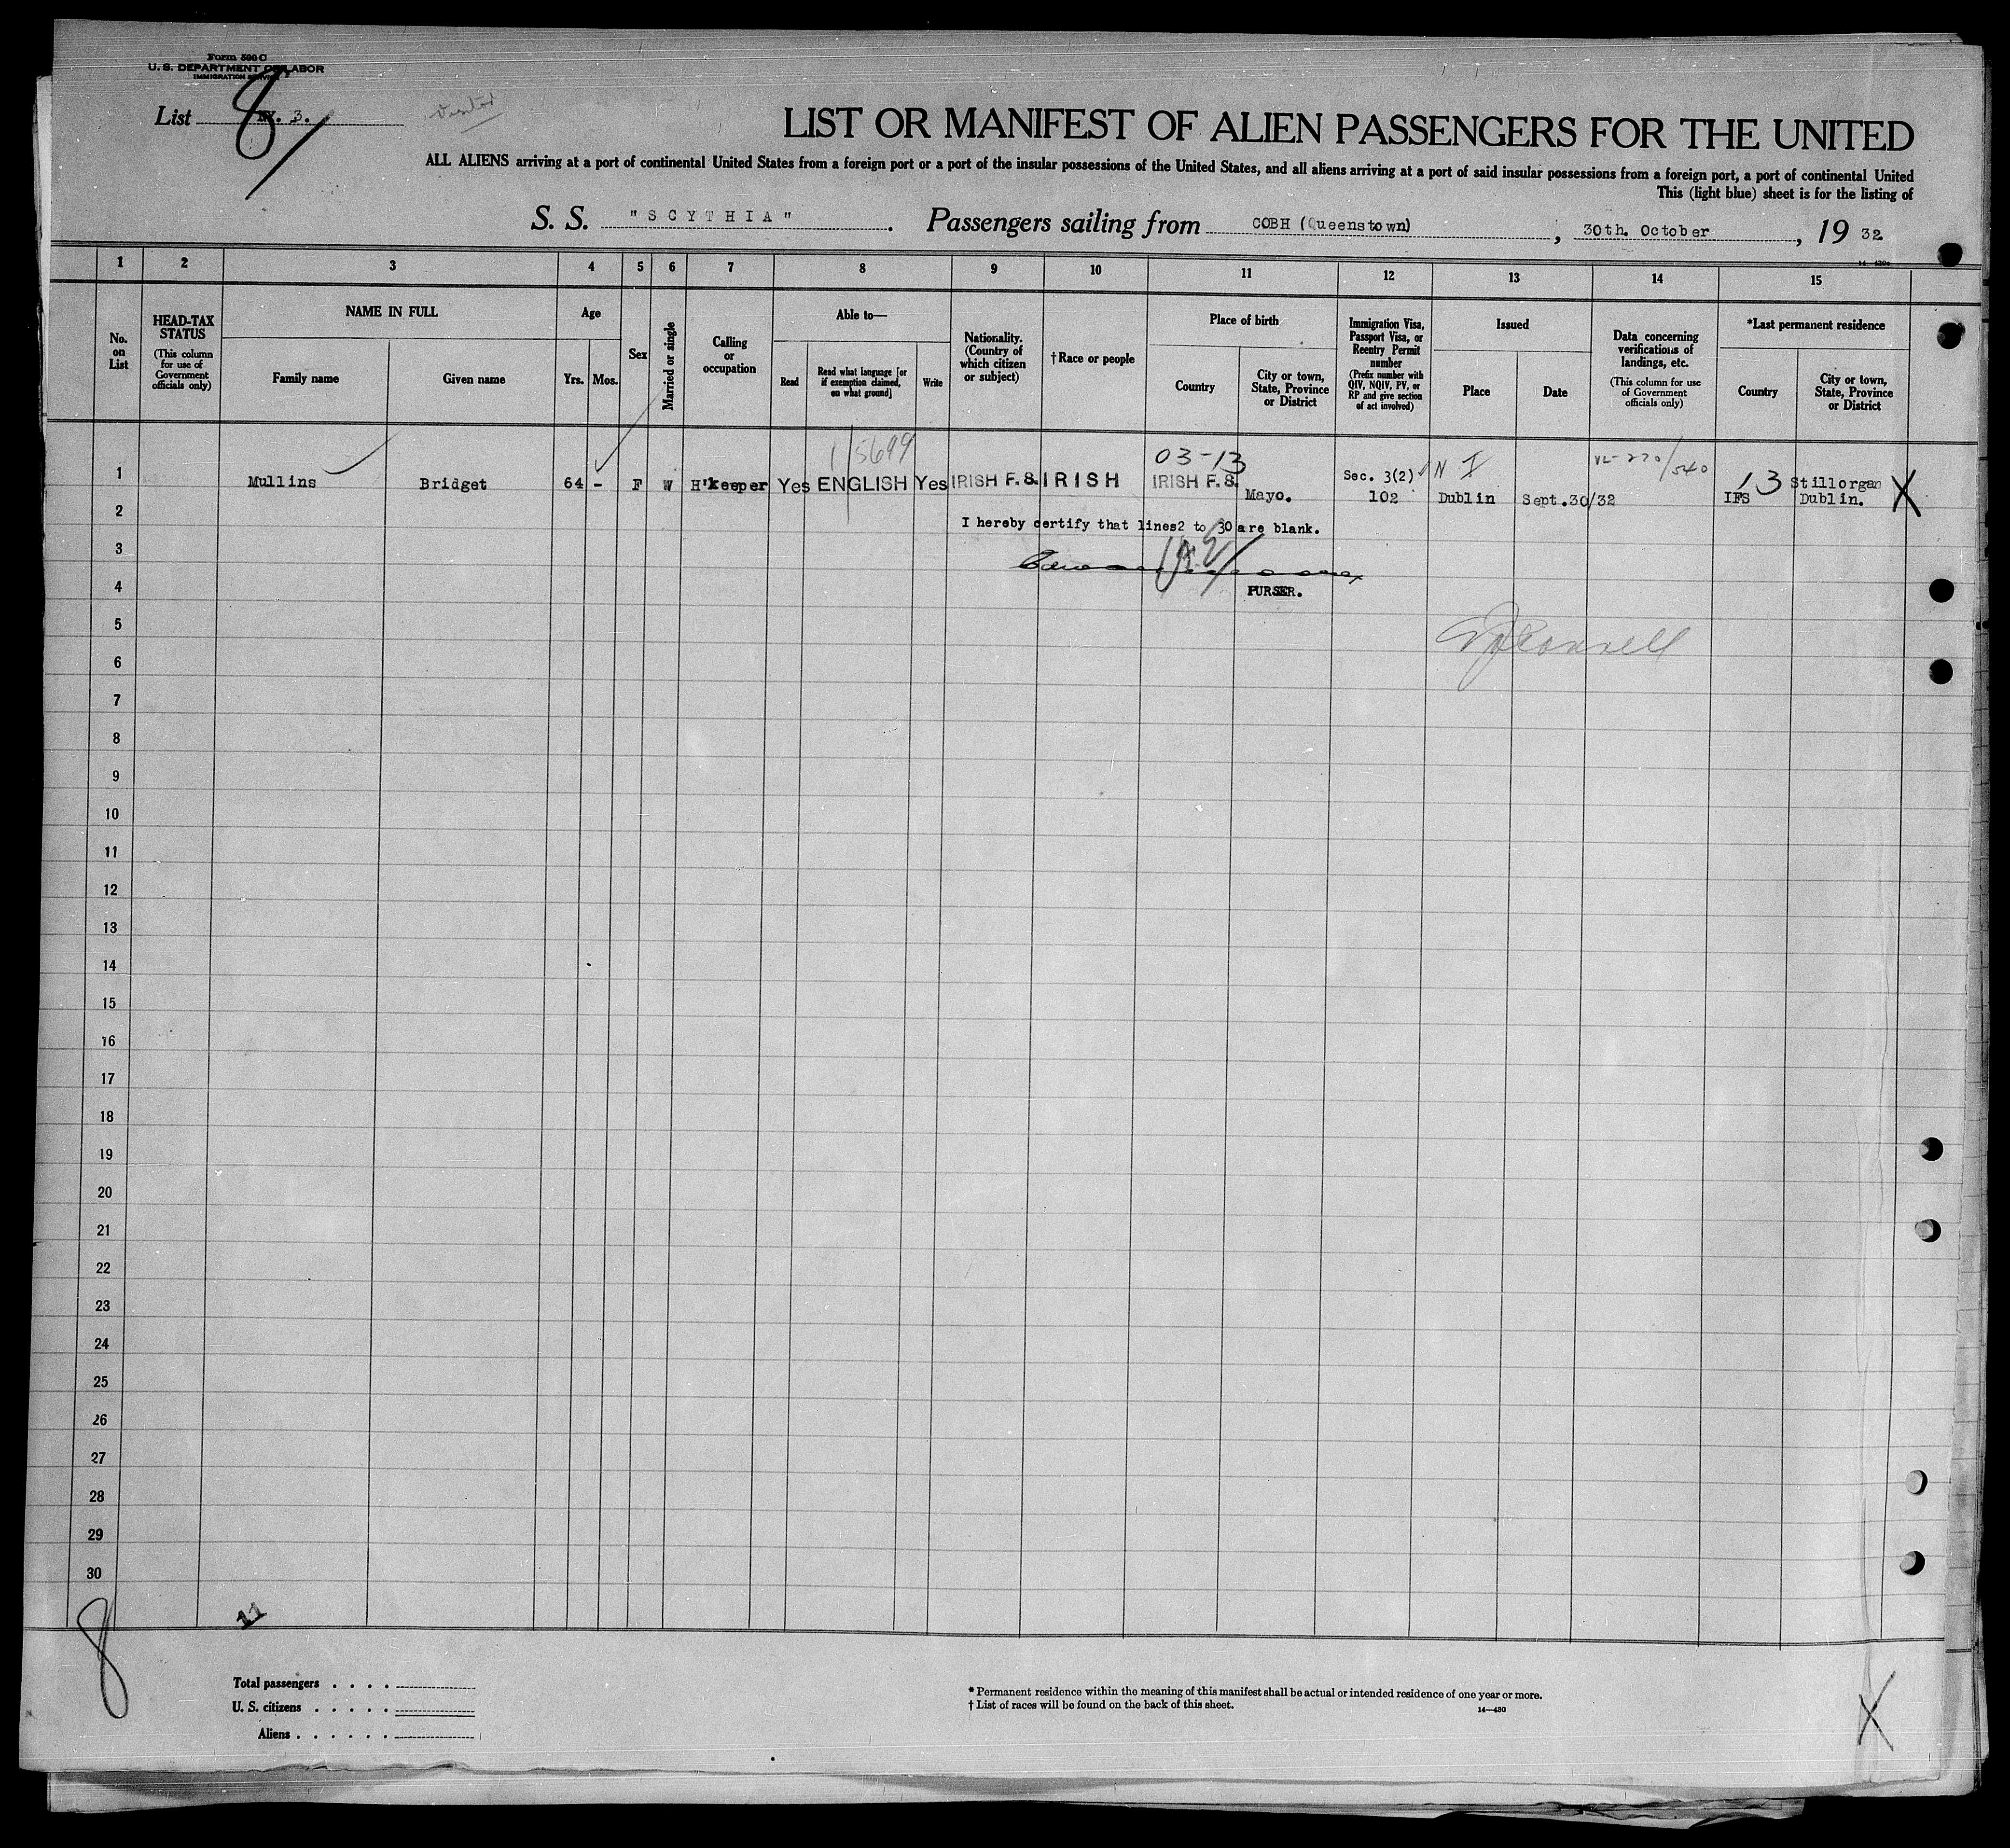 Form 500 C
U. S. DEPARTMENT OF LABOR
IMMIGRATION SERVICE
List 8 3.
LIST OR MANIFEST OF ALIEN PASSENGERS FOR THE UNITED
ALL ALIENS arriving at a port of continental United States from a foreign port or a port of the insular possessions of the United States, and all aliens arriving at a port of said insular possessions from a foreign port, a port of continental United
This (light blue) sheet is for the listing of
S. S. "SCYTHIA". Passengers sailing from COBH (Queenstown), 30th. October, 19 32
1 2 3 4 5 6 7 8 9 10 11 12 13 14 15
No. on List
HEAD-TAX STATUS
(This column for use of Government officials only)
NAME IN FULL
Family name
Given name
Age
Yrs.
Mos.
Sex
Married or single
Calling or occupation
Able to—
Read
Read what language [or if exemption claimed, on what ground]
Write
Nationality. (Country of which citizen or subject)
†Race or people
Place of birth
Country
City or town, State, Province or District
Immigration Visa, Passport Visa, or Reentry Permit number
(Prefix number with QIV, NQIV, PV, or RP and give section of act involved)
Issued
Place
Date
Data concerning verifications of landings, etc.
(This column for use of Government officials only)
*Last permanent residence
Country
City or town, State, Province or District
1/5699 03-13 13
1 Mullins Bridget 64 - F W H'keeper Yes ENGLISH Yes IRISH F. S. IRISH IRISH F. S. Mayo. Sec. 3(2) 102 Dublin Sept.30/32 IFS Stillorgan Dublin. X
2
I hereby certify that lines2 to 30 are blank.
3
4
PURSER.
5
6
7
8
9
10
11
12
13
14
15
16
17
18
19
20
21
22
23
24
25
26
27
28
29
30
8
11
Total passengers . . . .
U. S. citizens . . . . .
Aliens . . . . . .
* Permanent residence within the meaning of this manifest shall be actual or intended residence of one year or more.
† List of races will be found on the back of this sheet.
14—430
X